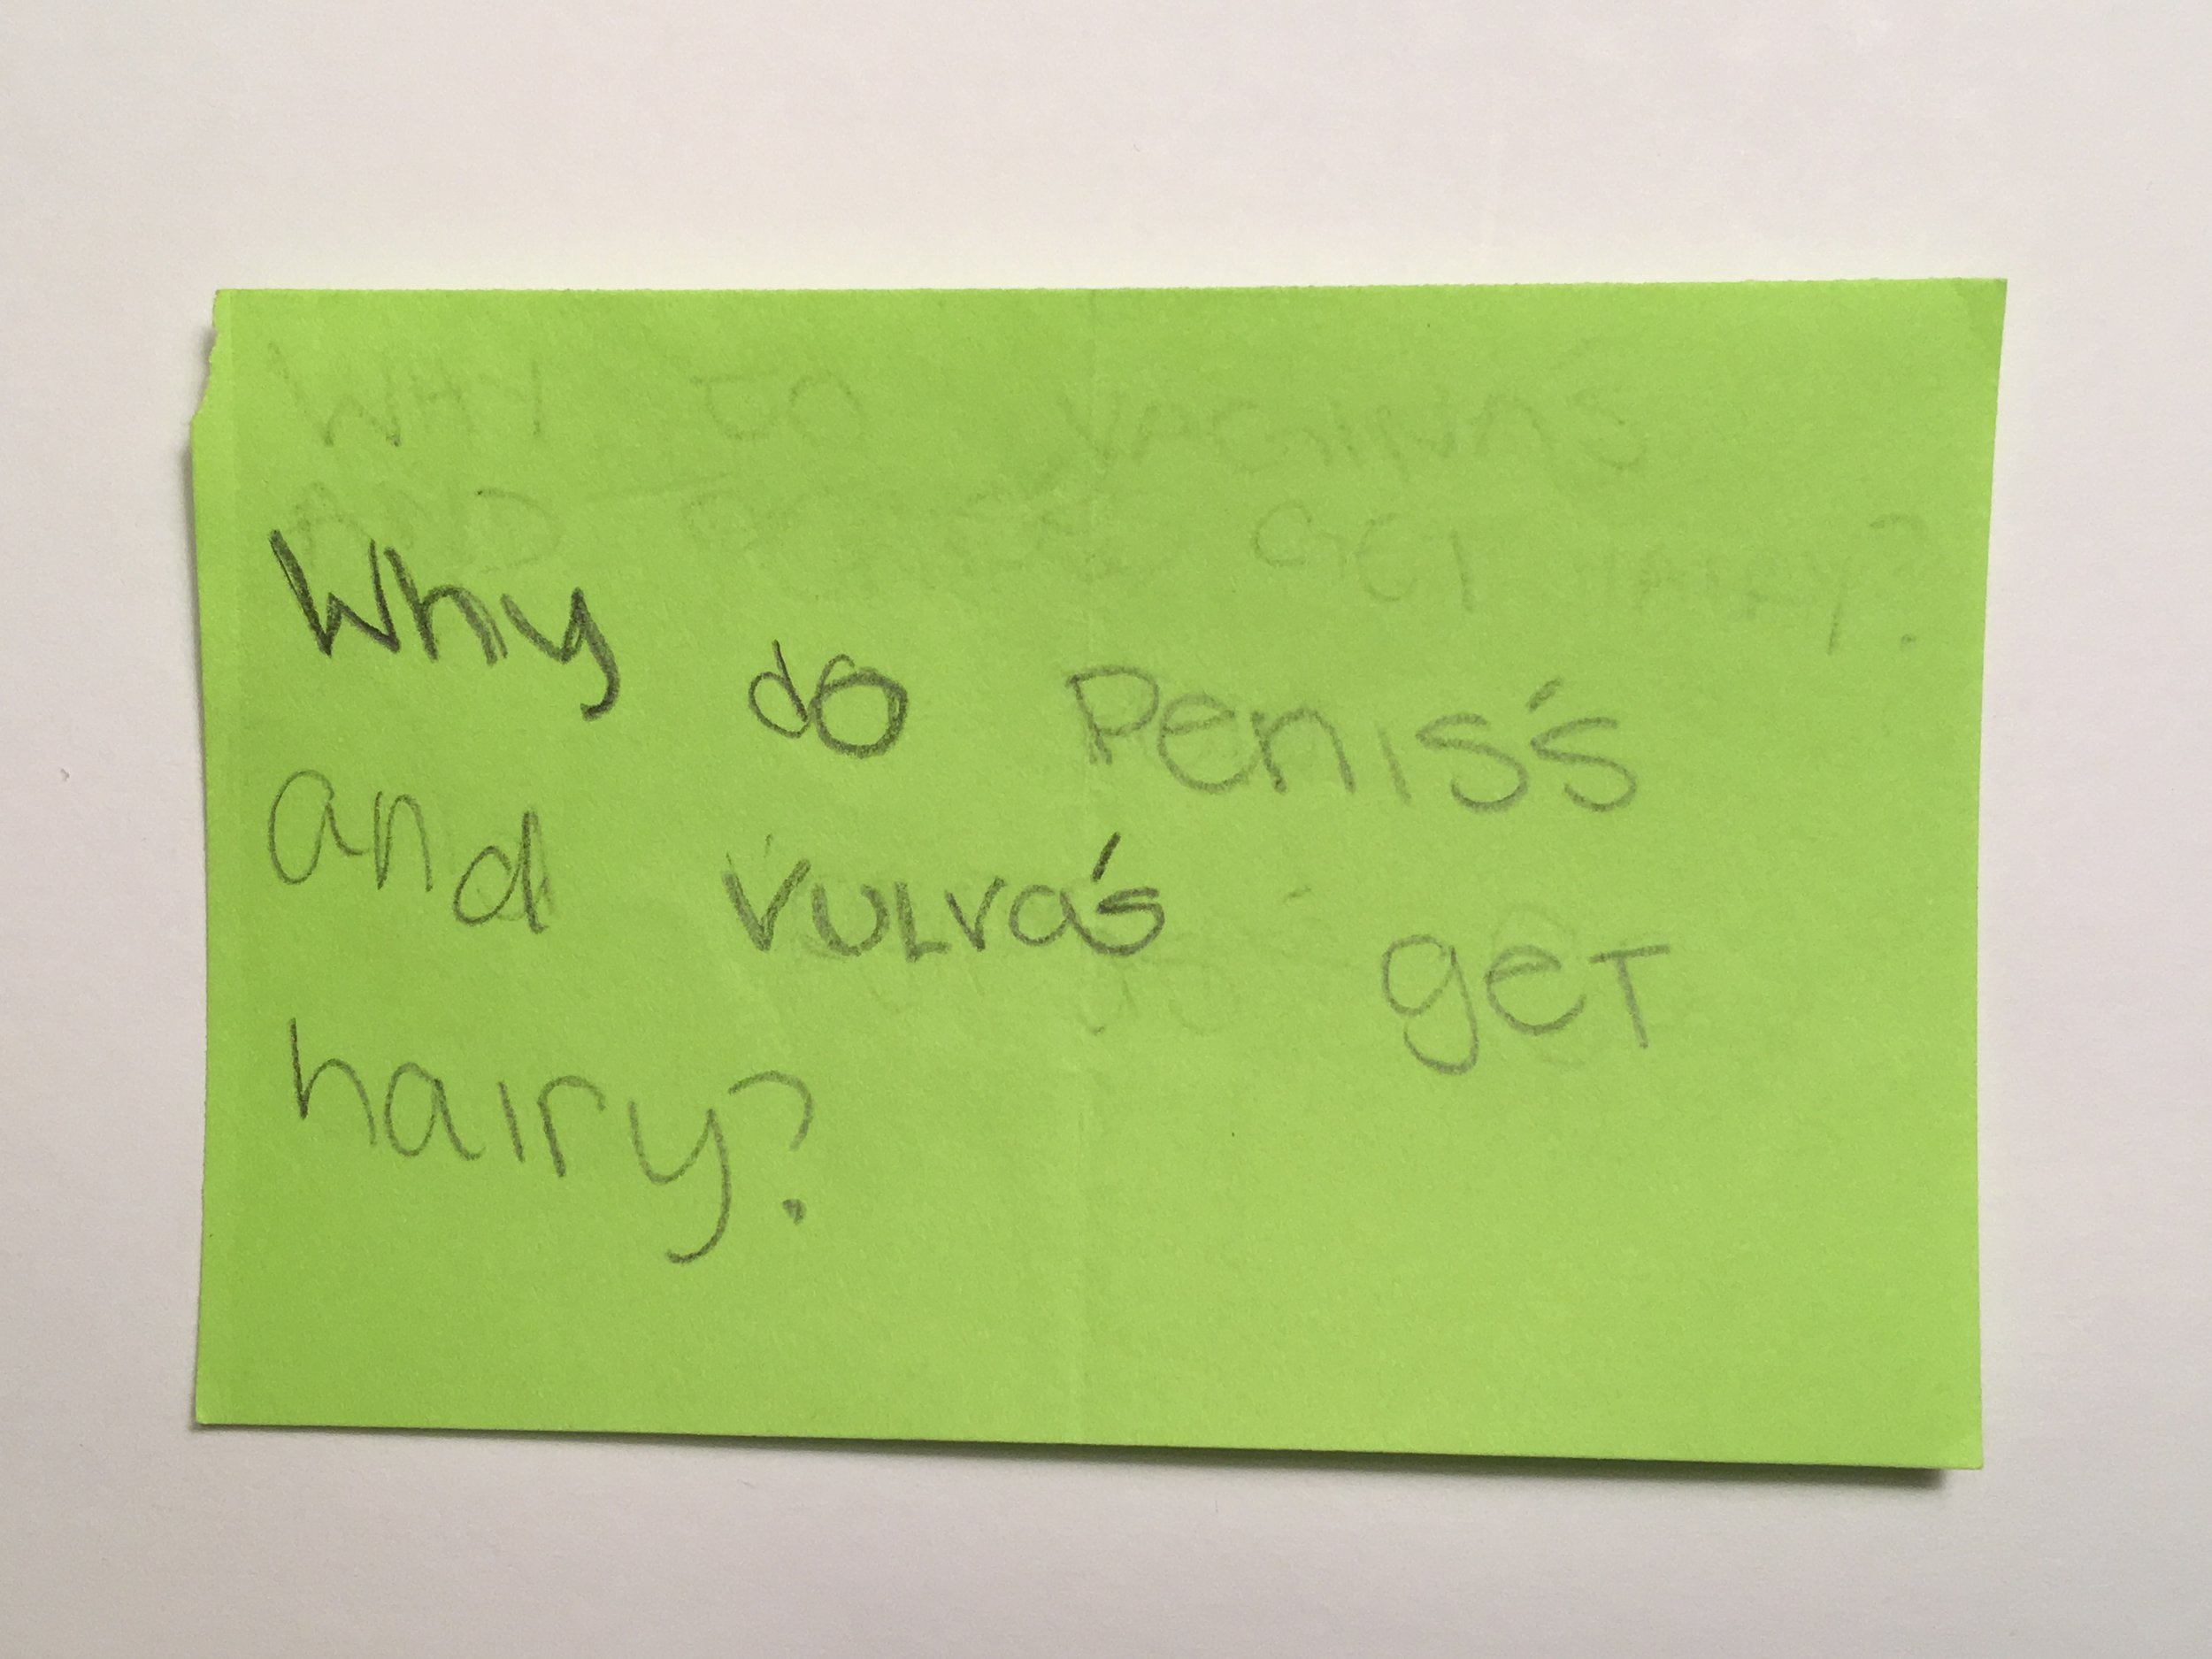 WHY DO VAGINAS
AND PENISES GET HAIRY?
Why do Penis's
and VULva's get
hairy?